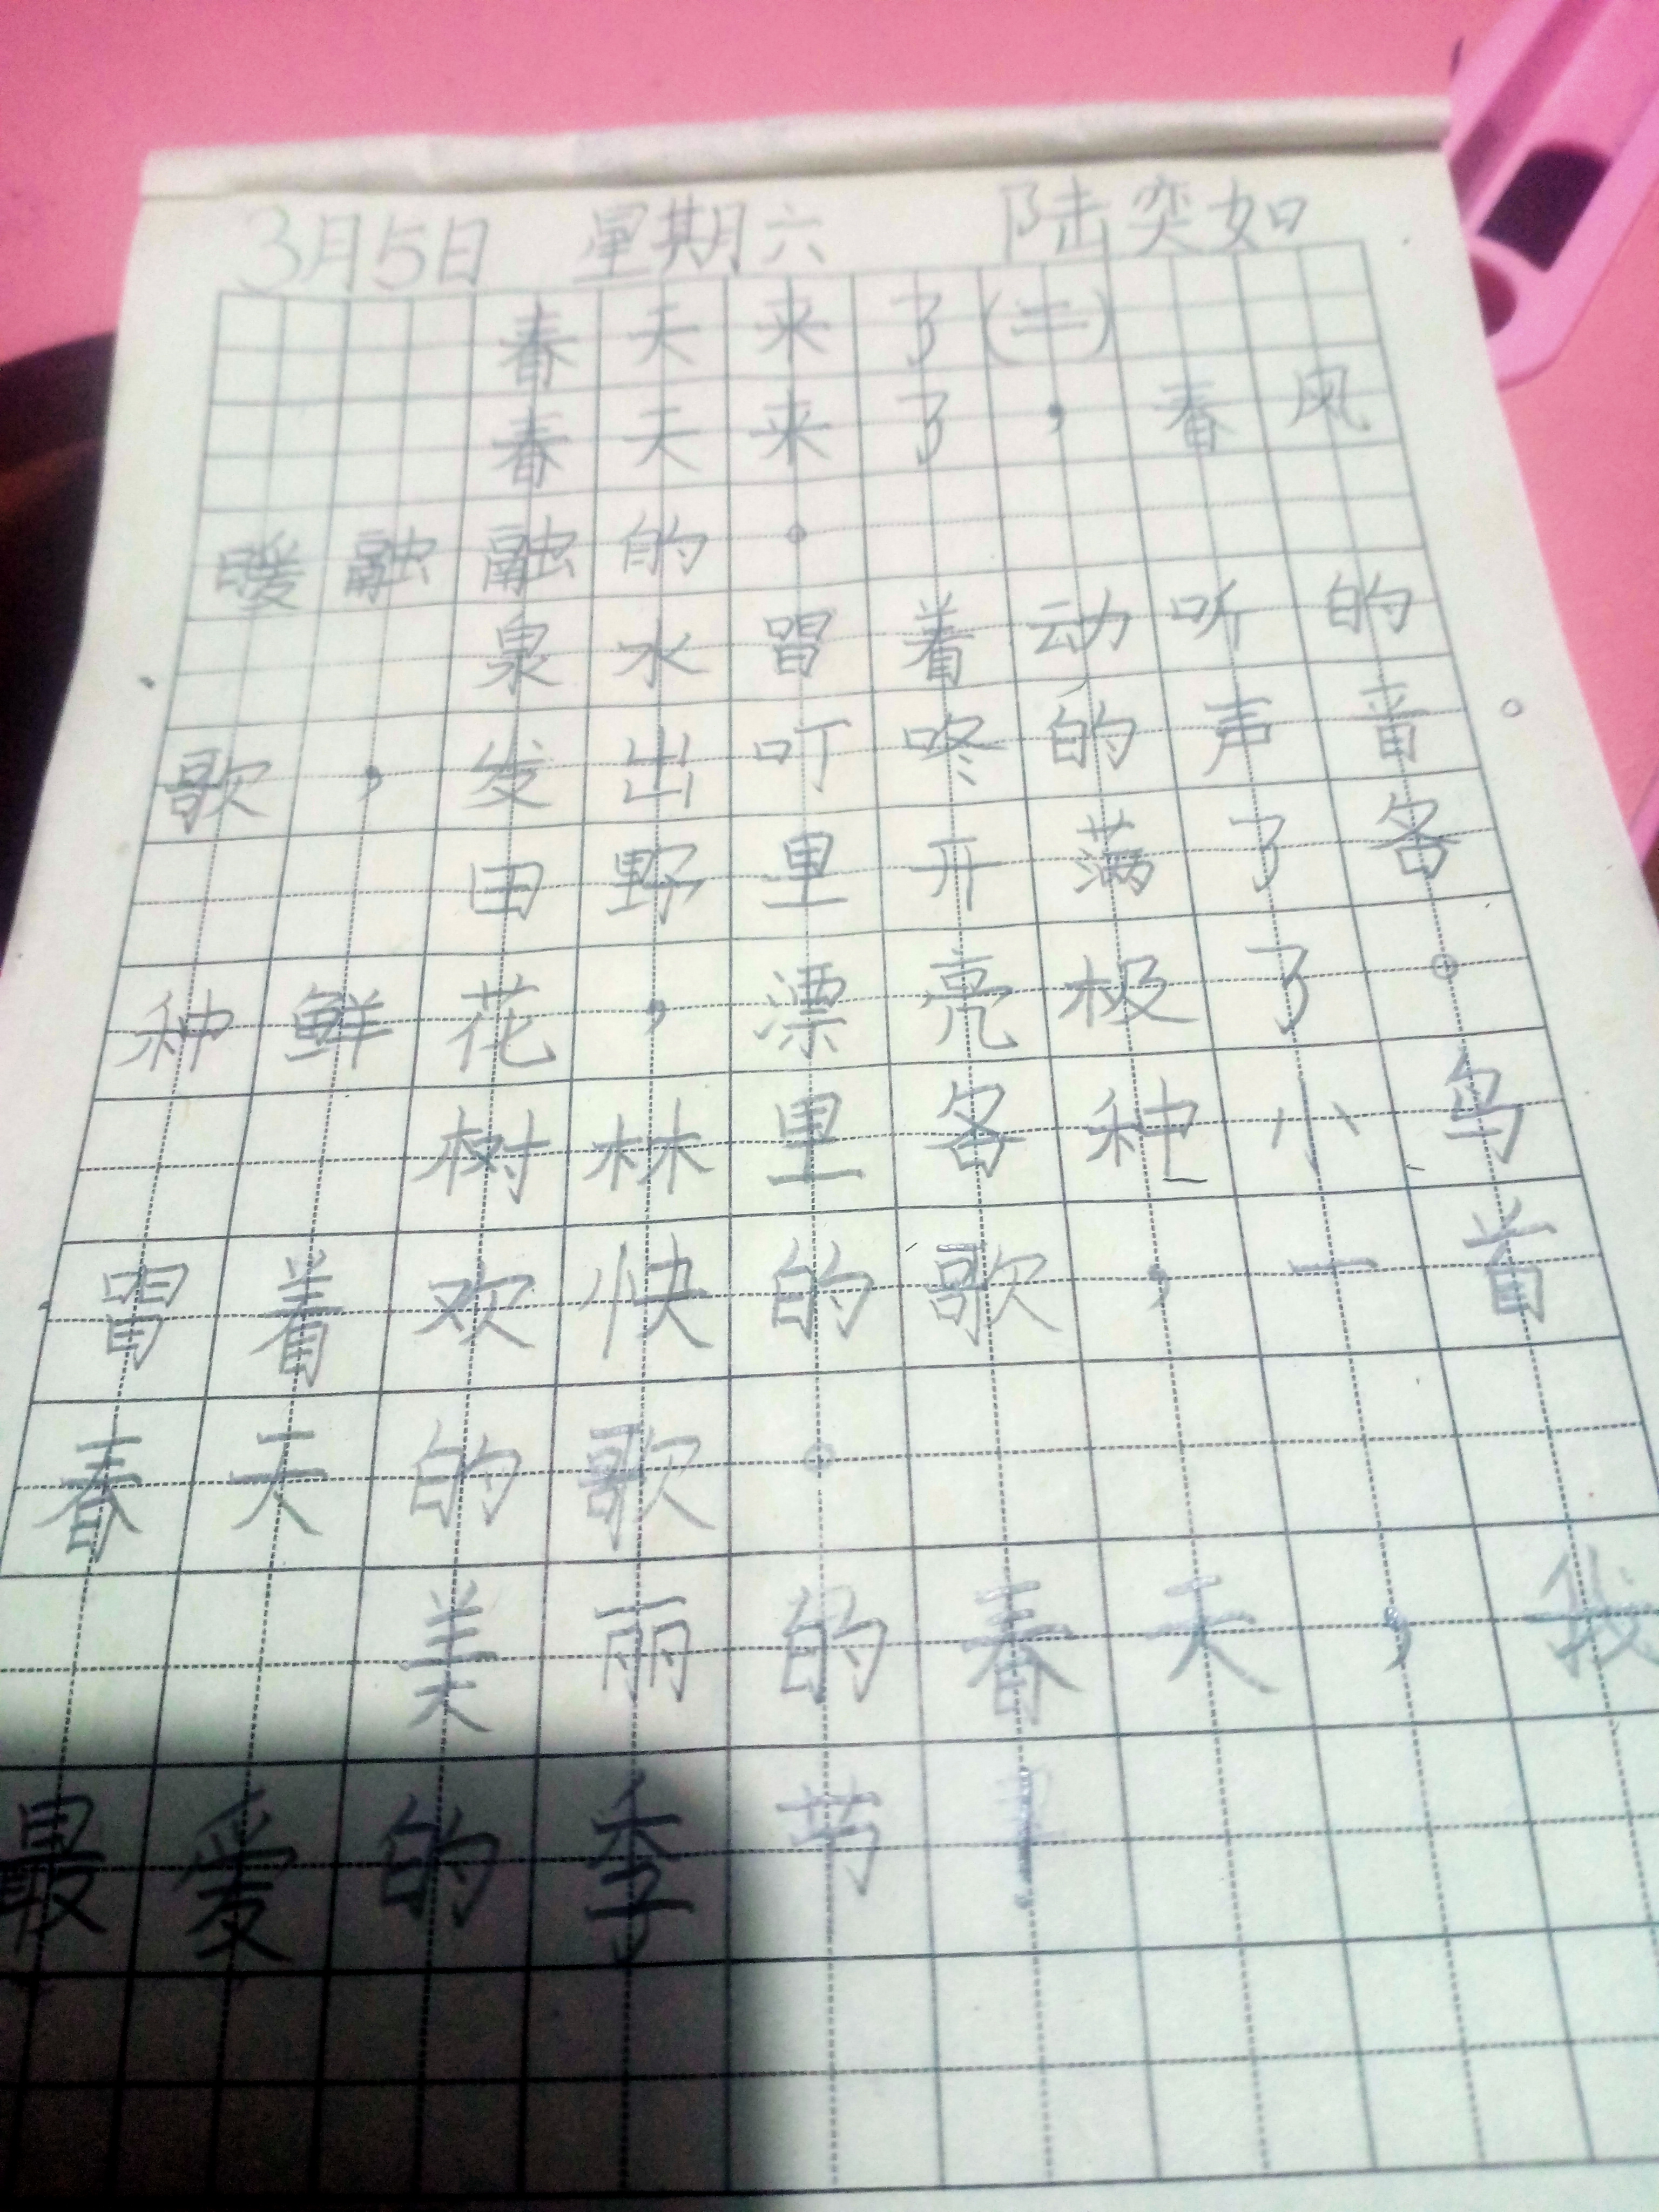 3月5日 星期六 陆奕如
春天来了(二)
春天来了，春风
暖融融的。
泉水冒着动听的
歌，发出叮咚的声音。
田野里开满了各
种鲜花，漂亮极了。
树林里各种小鸟
冒着欢快的歌，一首
春天的歌。
美丽的春天，我
最爱的季节！